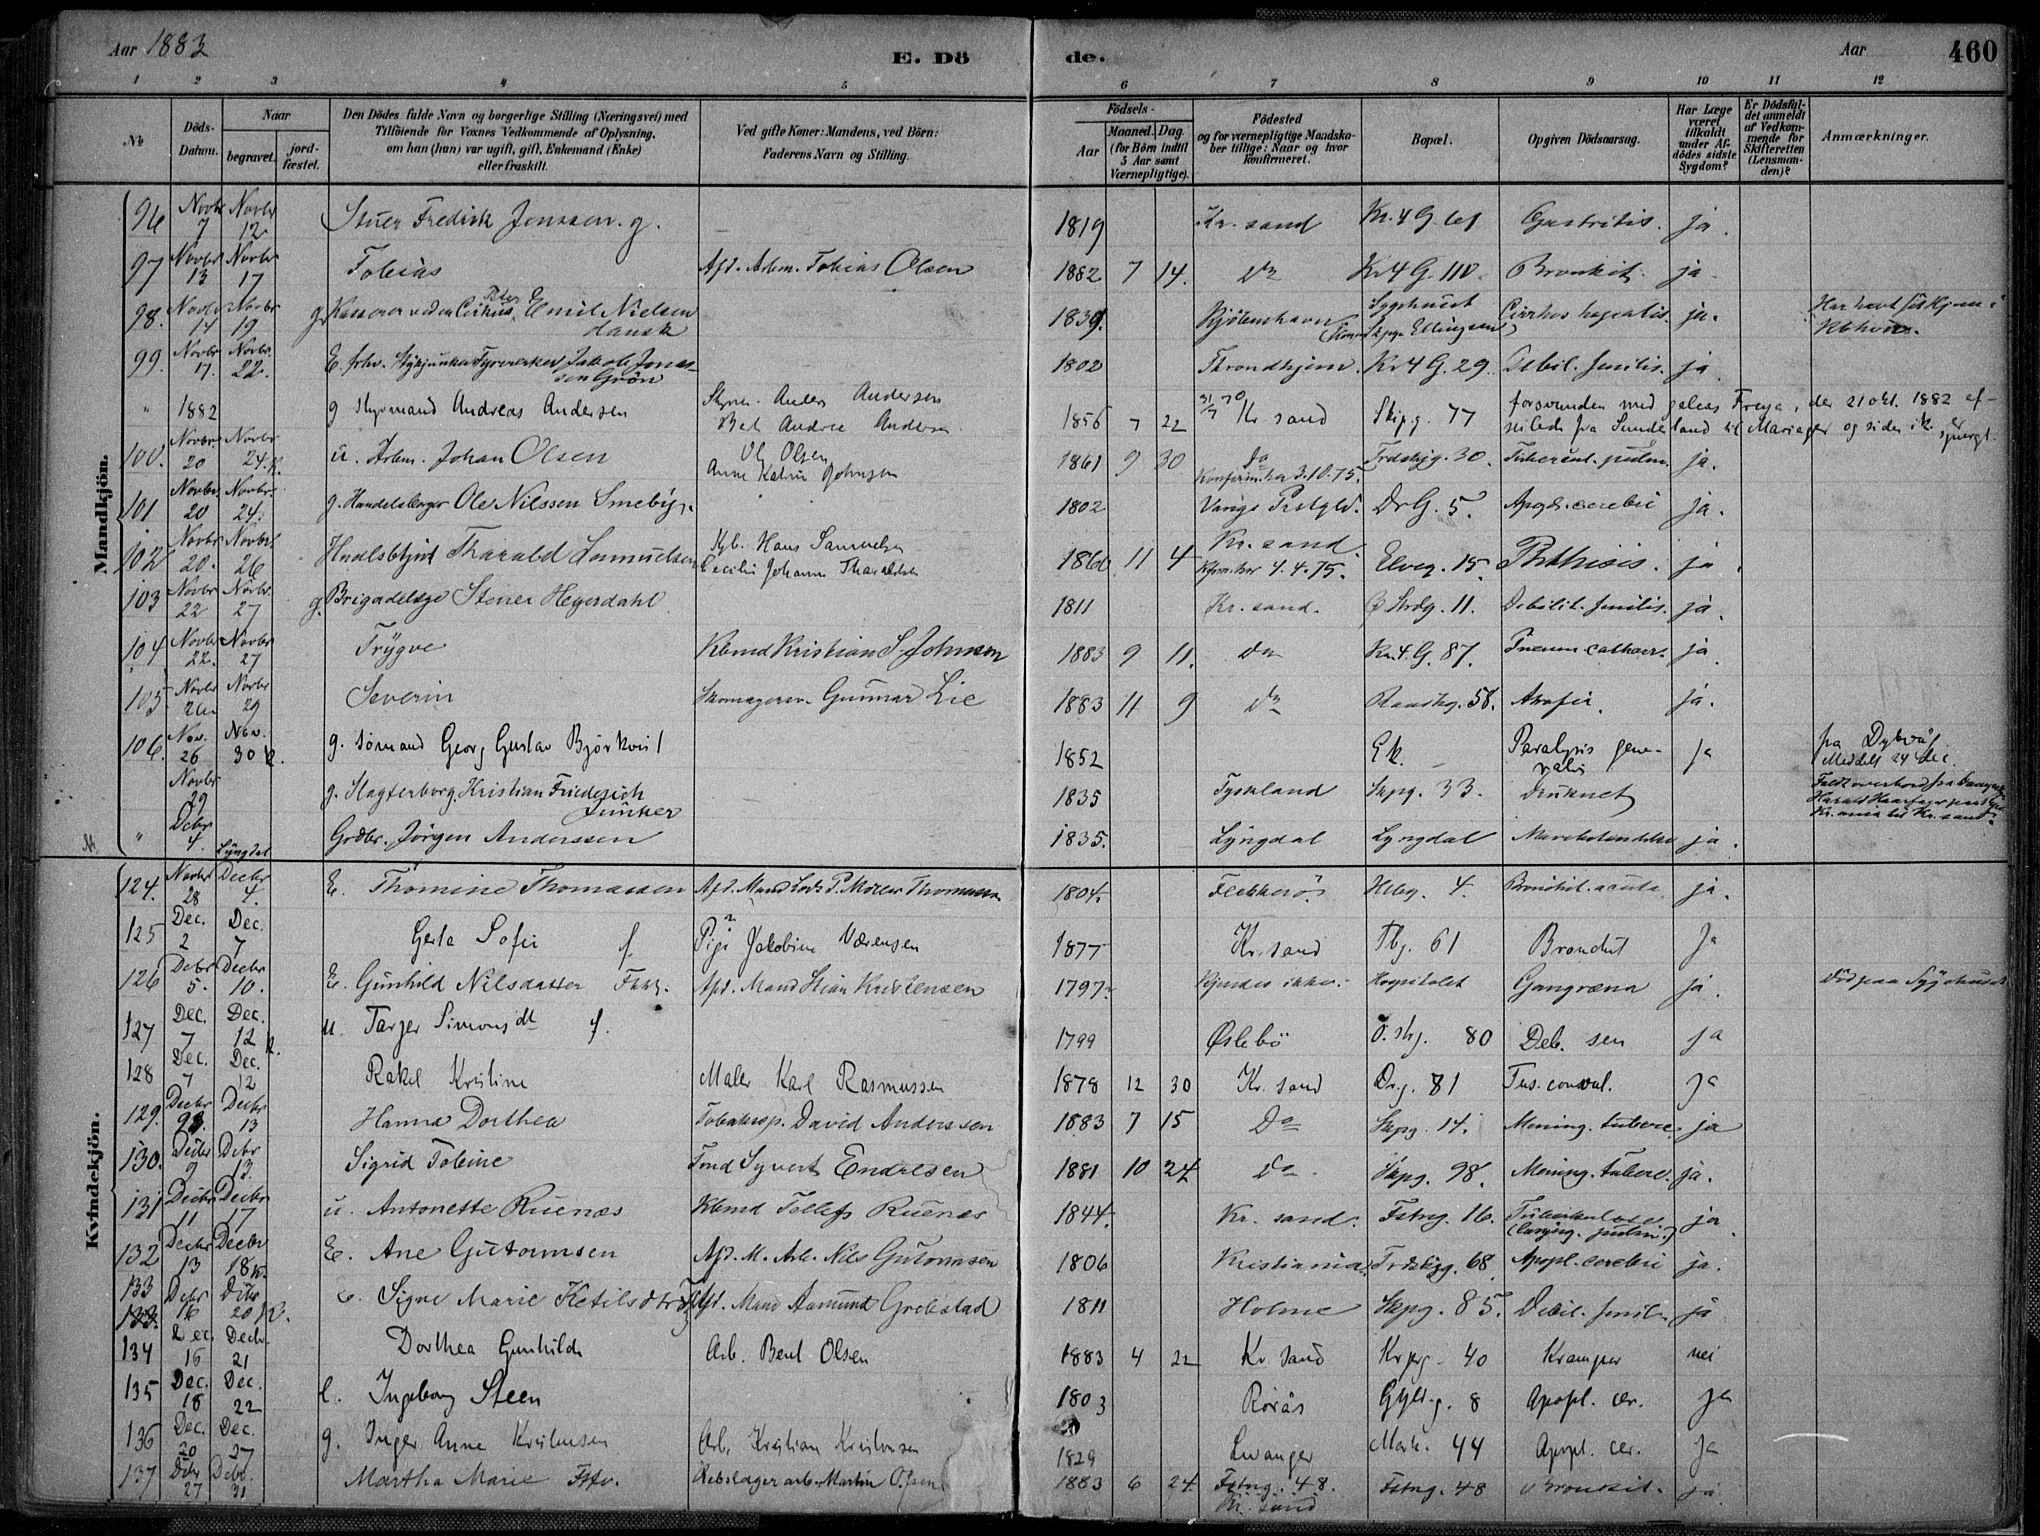 Aar 1883 E. Dö de. Aar 460
1 2 3 4 5 6 7 8 9 10 11 12
№ Döds-Datum. Naar begravet. jordfæstet. Den Dödes fulde Navn og borgerlige Stilling (Næringsvei) med Tilföiende for Voxnes Vedkommende af Oplysning, om han (hun) var ugift, gift, Enkemand (Enke) eller fraskilt. Ved gifte Koner: Mandens, ved Börn: Faderens Navn og Stilling. Födsels- Aar Maaned. Dag. (for Börn indtil 5 Aar samt Værnepligtige). Födested og for værnepligtige Mandskaber tillige: Naar og hvor konfirmeret. Bopæl. Opgiven Dödsaarsag. Har Læge været tilkaldt under Afdödes sidste Sygdom? Er Dödsfaldet anmeldt af Vedkommende for Skifteretten (Lensmanden)? Anmærkninger.
Mandkjön.
96 Novbr 7 Novbr 12 Fredrik Jenssen. g. 1819 Kr. sand Kr. 4 G. 61 Gastritis. ja.
97 Novbr 13 Novbr 17 Tobias Afd. Arbm. Tobias Olsen 1882 7 14. Do Kr 4 G. 110. Bronkit. ja
98. Novbr 14 Novbr 19 g. Kasserer ved en Cirkus, Peter E Emil Nielsen dansk 1839. Kjöbenhavn Sygehuset Skpg. Ellingsen Cirrhos hepatis. ja. Har havt sit Hjem i Kbhvn.
99. Novbr. 17. Novbr. 22. E. fhv. Stykjunker Fyrverker Jakob Jonassen Grön 1802 Throndhjem. Kr 4 G. 29. Debil. senilis. ja
" 1882 g Styrmand Andreas Andersen Skpm. Anders Andersen 1856 7 22 Kr sand Skipg. 77 forsvunden med galeas Freya, der 21 okt. 1882 afseilede fra Sunderland til Mariager og siden ik. er spurgt.
100. Novbr 20 Novbr 24. K. u. Arbm. Johan Olsen Ol. Olsen Anne Katrin Johnsen 1861 9 30 do Konfirm. her 3.10.75. Frdskjg. 30. Tubercul. pulm. ja.
101 Novbr 20 Novbr. 24. g. Handelsborger Ole Nilssen Smeby. 1802 Vangs Prstgld. Dr G. 5. Apopl. cerebri ja.
102 Novbr 20. Novbr 26 Handlsbtjnt Tharald Samuelsen Kjb. Hans Samuelsen Cecilie Johanne Tharaldsen 1860 11 4 Kr. sand. Kfrm. her 4.4.75. Elveg. 15. Phthisis. ja.
103 Novbr 22 Novbr. 27 g. Brigadelæge Stener Hegerdahl. 1811 Kr. sand. Ø Strdg. 11. Debilit. senilis. ja.
104 Novbr 22. Novbr 27 Trygve Kbmd Kristian S. Johnsen 1883 9 11. Do Kr. 4. G. 87. Pneum. cathar. ja
105 Novbr 26 Novbr 29 Severin Skomagersv. Gunnar Lie 1883 11 9 Do 58. Atrofie. ja.
106. Nov. 26 Nov. 30 K. g. sömand Georg Gustav Björkvist 1852 Gk. Paralysis generalis Ja fra Dykvåg. Meddelt 24 dec.
Novbr 29 g. Hagterborg. Kristian Friederich Junker 1835 Tyskland Skpg. 33. Druknet Faldt overbord fra Harald Haarfager paa Kr.ania til Kr. sand.
" Debr 4. Lyngdal Grdbr. Jörgen Anderssen 1835. Lyngdal Lyngdal ja.
Kvindekjön.
124. Novbr 28 Decbr 4. E. Thomine Thomassen Afd. Mand Lods P. Möller Thomassen 1804. Flekkerö Hlbg. 4. Bronkit. acuta ja.
125 Dec. 2 Dec. 7 Gerla Sofie f. Pige Jakobine Værensen 1877 Kr. sand Tbg. 61 Brandut Ja
126 Debr 5. Decbr 10. E. Gunhild Nilsdatter Fattg. Afd. Mand Stian Kristensen 1797. Kjendes ikke. Hospitalet Gangræna ja. Död paa Sygehuset
127 Dec. 7 Dec. 12 K. u. Tarjer Simonsdt f. 1799 Øslebö Ö. stg. 80 Deb. sen ja
128 Dec. 7 Dec. 12 Rakel Kristine Maler Karl Rasmussen 1878 12 30 Kr. sand Drg. 81 Tus. conval. Ja
129. Decbr 8. Decbr 13 Hanna Dorthea Tobaksp. David Anderssen 1883 7 15 Do Skpg. 14. Mening. tuberc. ja
130. Decbr 9 Debr 13. Sigrid Tobine Tmd Syvert Endresen 1881 10 24 Do Skpg. 98. Mening. tuberc. ja.
131 Decbr 11 Decbr 17 u. Antonette Ruenæs Kbmd Tollefs Ruenæs 1844. Kr. sand. Fstng. 16. Tuberkulose (laryng. pulm.) ja.
132 Decbr 13 Decbr 18 K. E. Ane Gutormsen Afd. M. Arb. Nils Gutormsen 1806 Kristiania. Frdskjg. 68. Apopl. cerebri ja.
133 Debr 16 Debr 20 K. E. Signe Marie Ketilsdtr Afd. Mand Aamund Grebstad 1811 Holme Skpg. 85. Debil. senil. ja
134 Dec. 16 Decbr. 21 Dorthea Gunhilde Arb. Bent Olsen 1883 4 22 Kr. sand Krprg. 40 Kramper nei
135 Dec. 18 Dec. 22 E. Ingeborg Steen 1803 Rörås Gyld.g. 8 Apopl. cer. Ja
136 Dec. 20 Dec. 27 g. Inger Anne Kristensen Arb. Kristian Kristensen 1829 Levanger Mark. 44 Apopl. cer. Ja
137 Debr 27 Debr. 31 Martha Marie Rebslagerarb. Martin Olsen 1883 6 24 Fstng. 48. Kr. sand Fstng. 48 Bronkit. ja.